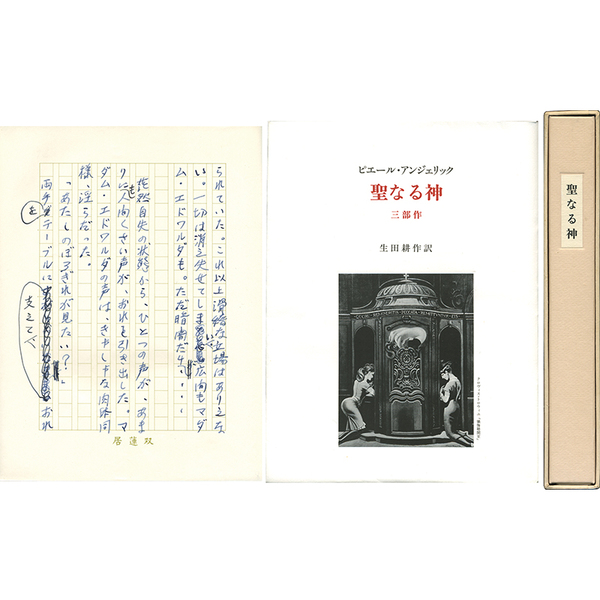 られていた。これ以上滑稽な立場はありえな
い。一切は消え失せてしまい、広間もマダ
ム・エドワルダも。ただ暗闇だけ……
茫然自失の状態から、ひとつの声が、あま
りにも人間くさい声が、おれを引き出した。マ
ダム・エドワルダの声は、きゃしゃな肉体同
様、淫らだった。
「あたしのぼろぎれが見たい?」
両手 テーブルに おれ
を
支えて
双蓮居
ピエール・アンジェリック
聖なる神
三部作
生田耕作訳
聖なる神